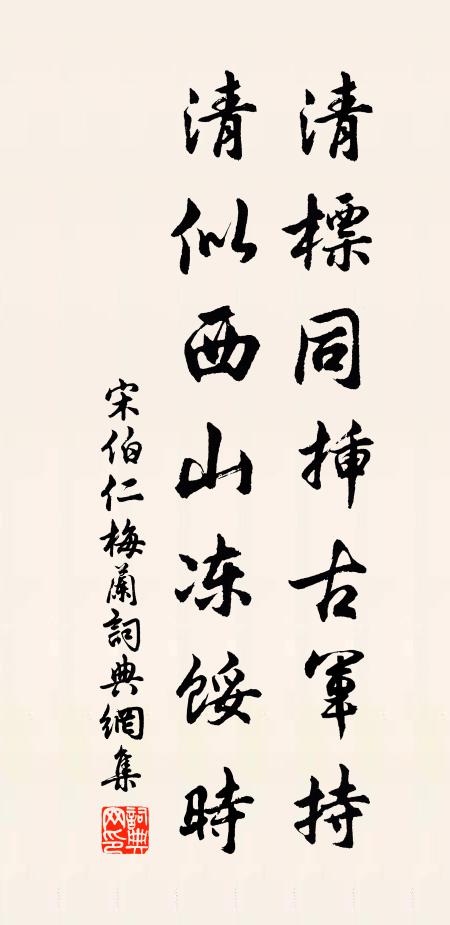 清標同挿古軍持
清似西山冻餒時
宋伯仁梅蘭詞典網集
詞典网印